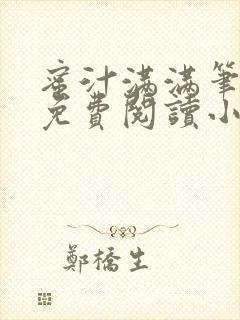 蜜汁滿滿筆
免費閱讀小
鄭橋生